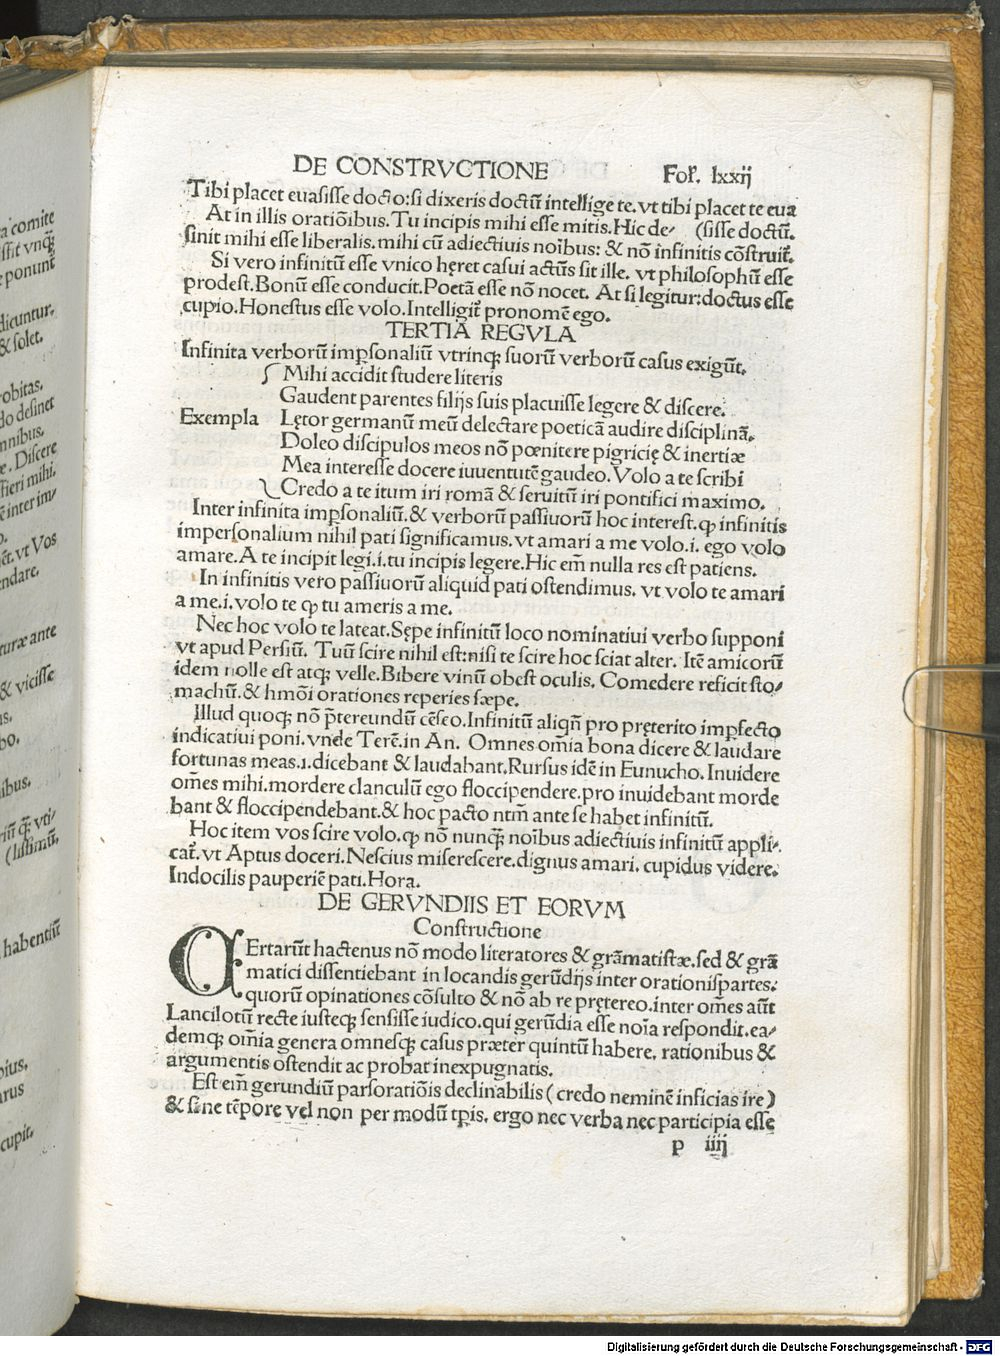 DE CONSTRVCTIONE Fol. lxxij
Tibi placet euasisse docto:si dixeris doctũ intellige te.vt tibi placet te eua
At in illis oratiõibus.Tu incipis mihi esse mitis.Hic de⸗ (sisse doctũ.
sinit mihi esse liberalis.mihi cũ adiectiuis noĩbus: & nõ infinitis cõstruit̃.
Si vero infinitũ esse vnico hęret casui actũs sit ille. vt philosophũ esse
prodest.Bonũ esse conducit.Poetã esse nõ nocet. At si legitur:doctus esse
cupio.Honestus esse volo.Intelligit̃ pronomẽ ego.
TERTIA REGVLA
Infinita verborũ imꝑsonaliũ vtrinqꝫ suorũ verborũ casus exigũt.
Mihi accidit studere literis
Gaudent parentes filijs suis placuisse legere & discere.
Exempla Lętor germanũ meũ delectare poeticã audire disciplinã.
Doleo discipulos meos nõ pœnitere pigricię & inertiæ
Mea interesse docere iuuentutẽ gaudeo.Volo a te scribi
Credo a te itum iri romã & seruitũ iri pontifici maximo.
Inter infinita imꝑsonaliũ.& verborũ passiuorũ hoc interest.ꝙ infinitis
impersonalium nihil pati significamus.vt amari a me volo.i. ego volo
amare.A te incipit legi.i.tu incipis legere.Hic em̃ nulla res est patiens.
In infinitis vero passiuorũ aliquid pati ostendimus. vt volo te amari
a me.i.volo te ꝙ tu ameris a me.
Nec hoc volo te lateat.Sępe infinitũ loco nominatiui verbo supponi
vt apud Persiũ. Tuũ scire nihil est:nisi te scire hoc sciat alter. Itẽ amicorũ
idem nolle est atqꝫ velle.Bibere vinũ obest oculis. Comedere reficit sto⸗
machũ.& hmõi orationes reperies sæpe.
Illud quoqꝫ nõ p̃tereundũ cẽseo.Infinitũ aliqñ pro pręterito imꝑfecto
indicatiui poni.vnde Terẽ.in An. Omnes om̃ia bona dicere & laudare
fortunas meas.i.dicebant & laudabant.Rursus idẽ in Eunucho.Inuidere
om̃es mihi.mordere clanculũ ego floccipendere.pro inuidebant morde
bant & floccipendebant.& hoc pacto ntm̃ ante se habet infinitũ.
Hoc item vos scire volo.ꝙ nõ nunqꝫ̃ noĩbus adiectiuis infinitũ appli⸗
cat̃.vt Aptus doceri.Nescius miserescere.dignus amari. cupidus videre.
Indocilis pauperiẽ pati.Hora.
DE GERVNDIIS ET EORVM
Constructione
CErtarũt hactenus nõ modo literatores & grãmatistæ.sed & grã
matici dissentiebant in locandis gerũdijs inter orationis partes:
quorũ opinationes cõsulto & nõ ab re pręterео.inter om̃es aũt
Lancilotũ recte iusteqꝫ sensisse iudico.qui gerũdia esse noĩa respondit.ea⸗
demqꝫ om̃ia genera omnesqꝫ casus præter quintũ habere. rationibus &
argumentis õstendit ac probat inexpugnatis.
Est em̃ gerundiũ pars oratiõis declinabilis (credo neminẽ inficias ire)
& sine tẽpore vel non per modũ tꝑis. ergo nec verba nec participia esse
p iiij
a comite
ssit vnqꝫ̃
e ponunt̃
dicuntur.
& solet.
robitas.
do desinet
mnibus.
e. Discere
fieri mihi.
ẽ inter im⸗
o.
vt Vos
endare.
turæ ante
& vicisse
us.
bo.
nibus.
riũ qꝫ̃ vti⸗
(lissimũ.
habentiũ
pius.
arus
cupit.
Digitalisierung gefördert durch die Deutsche Forschungsgemeinschaft - DFG